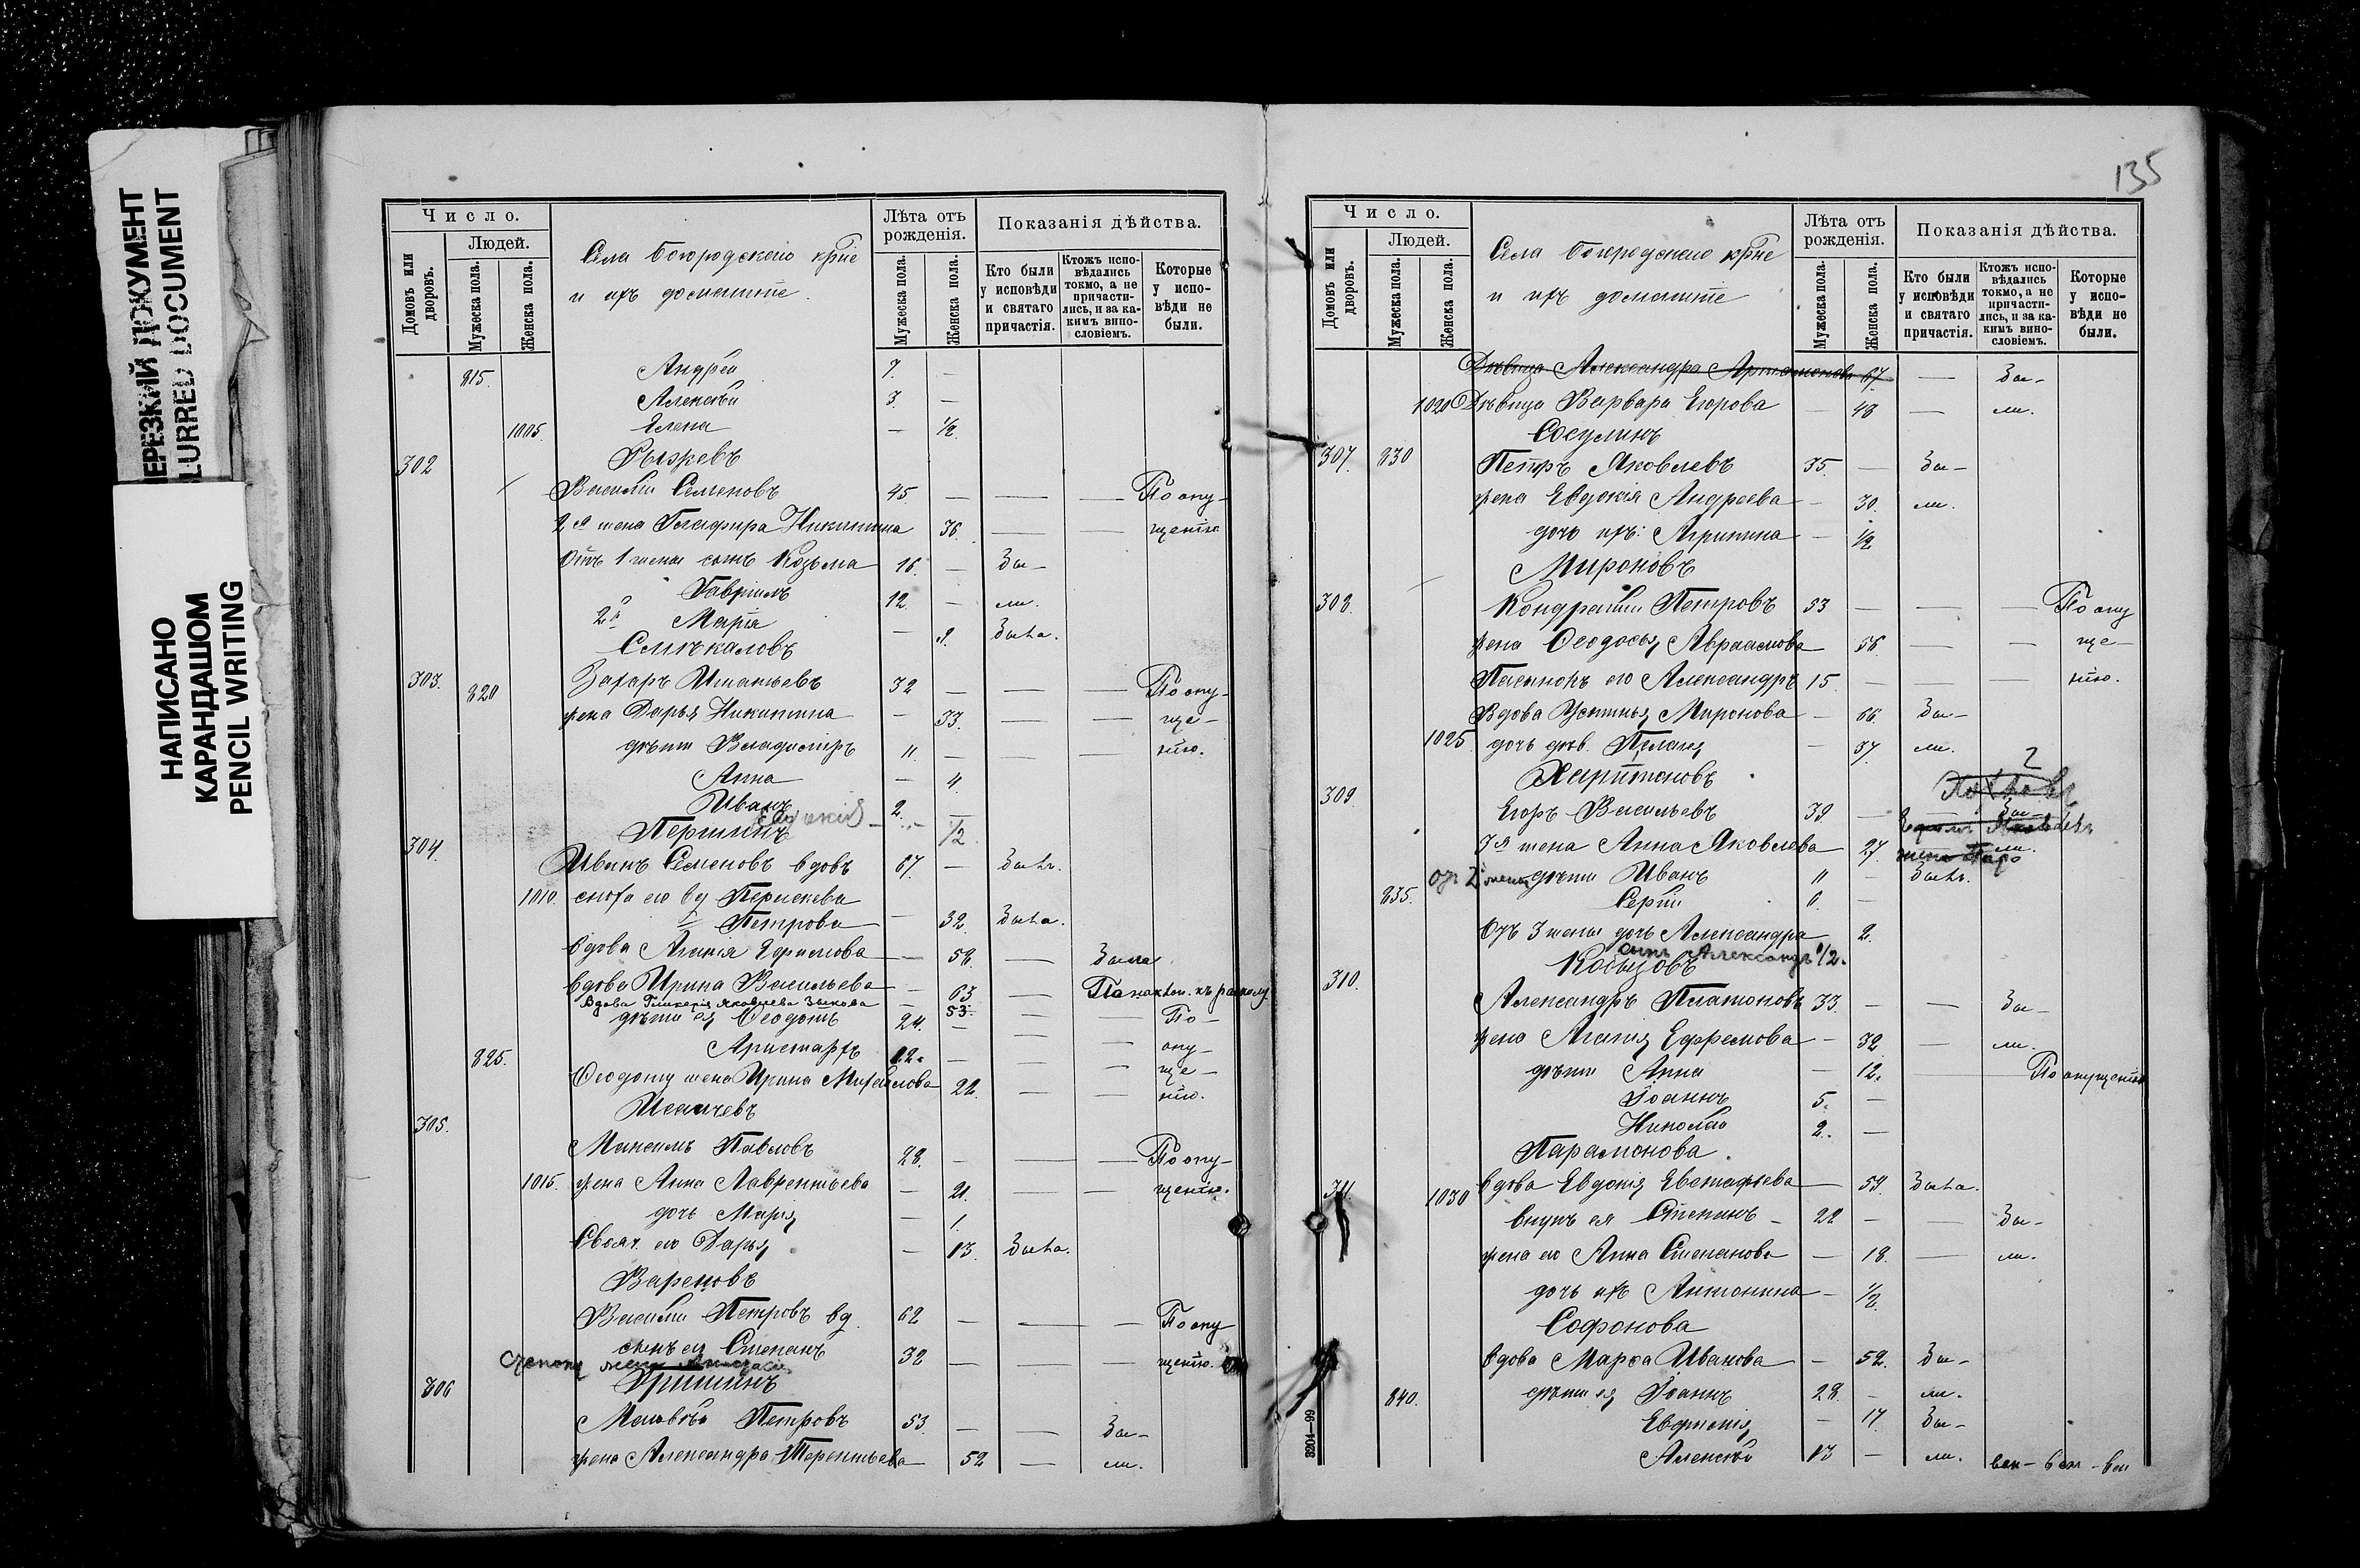 НЕРЕЗКИЙ ДОКУМЕНТ
BLURRED DOCUMENT
НАПИСАНО
КАРАНДАШОМ
PENCIL WRITING
Число.
Людей.
Домовъ или дворовъ.
Мужеска пола.
Женска пола.
Села Богородскаго кр̃не
и ихъ домашніе.
Лѣта отъ рожденія.
Мужеска пола.
Женска пола.
Показанія дѣйства.
Кто были у исповѣди и святаго причастія.
Ктожъ исповѣдались токмо, а не причастились, и за каким винословіемъ.
Которые у исповѣди не были.
815. Андрей 7. —
Алексѣй 3. —
1005. Елена — 1/2.
302 Рыжевъ
Василій Семеновъ 45 — — — По опу-
2я жена Глафира Никитина 36. — — щенію
Отъ 1 жены сынъ Козьма 16. — Бы-
Гавріилъ 12. — ли.
2й Марія — 9. Была.
303. Смѣкаловъ
820 Захаръ Игнатьевъ 32 — — — По опу-
жена Дарья Никитина — 33. — — ще-
дѣти Владиміръ 11. — — — нію.
Анна — 4.
Иванъ 2. —
1/2
304. Першинъ
Иванъ Семеновъ вдовъ 67. — Былъ.
1010. сноха его вд Перасковья
Петрова — 32. Была.
вдова Агапія Ефимова — 58. — Была
вдова Ирина Васильева — 63 — По наклон. къ расколу
Вдова Гликерія Яковлева Зыкова — 53. —
дѣти ея Ѳеодотъ 24. — — — По-
825. Аристархъ 22. — — — опу-
Ѳеодоту жена Ирина Михайлова 22. — — ще-
нію.
305. Исаичевъ
Максимъ Павловъ 28. — — — По опу-
1015. жена Анна Лаврентьева — 21. — — щенію.
дочь Марія — 1.
Своач. его Дарья — 13. Была.
Вареновъ
Василій Петровъ вд. 62 — — — По опу
сынъ ея Степанъ 32 — — — щенію.
Степану жена
306 Гришинъ
Матвѣй Петровъ 53. — — Бы-
жена Александра Терентьева — 52 — ли.
135
Число.
Людей.
Домовъ или дворовъ.
Мужеска пола.
Женска пола.
Села Богородскаго кр̃не
и ихъ домашніе
Лѣта отъ рожденія.
Мужеска пола.
Женска пола.
Показанія дѣйства.
Кто были у исповѣди и святаго причастія.
Ктожъ исповѣдались токмо, а не причастились, и за каким винословіемъ.
Которые у исповѣди не были.
Дѣвица Александра Артамонова 67. — Бы-
1020 Дѣвица Варвара Егорова — 48 — ли.
Сосулинъ
307. 830 Петръ Яковлевъ 35. — Бы-
жена Евдокія Андреева — 30. ли.
дочь ихъ: Агрипина — 1/2
Мироновъ
308. Кондратій Петровъ 53 — — По опу
жена Ѳеодосья Авраамова 56. — — ще-
Пасынокъ его Александръ 15. — — нію.
Вдова Устинья Миронова — 66. Бы-
1025. дочь дѣв. Пелагія — 37. ли.
2
309. Харитоновъ
Егоръ Васильевъ 39. — Бы-
3я жена Анна Яковлева 27. ли.
отъ 2 жены дѣти Иванъ 11 — Былъ.
835. Сергій 6. —
Отъ 3 жены дочь Александра 2.
сынъ Александръ 1/2.
310. Косызовъ
Александръ Платоновъ 33. — — Бы-
жена Агапія Ефремова — 32. — ли.
дѣти Анна — 12. — По опущенію
Іоаннъ 5. —
Николай 2. —
Парамонова.
311. 1030 вдова Евдокія Евстафьева — 59. Была.
внукъ ея Степанъ — 22 — — Бы-
жена его Анна Степанова — 18. — ли.
дочь ихъ Антонина — 1/2
Софонова
вдова Марѳа Иванова — 52. Бы-
840. дѣти ея Іоаннъ 28. — ли.
Евфимія — 17. Бы-
Алексѣй 13 — ли.
3204—99